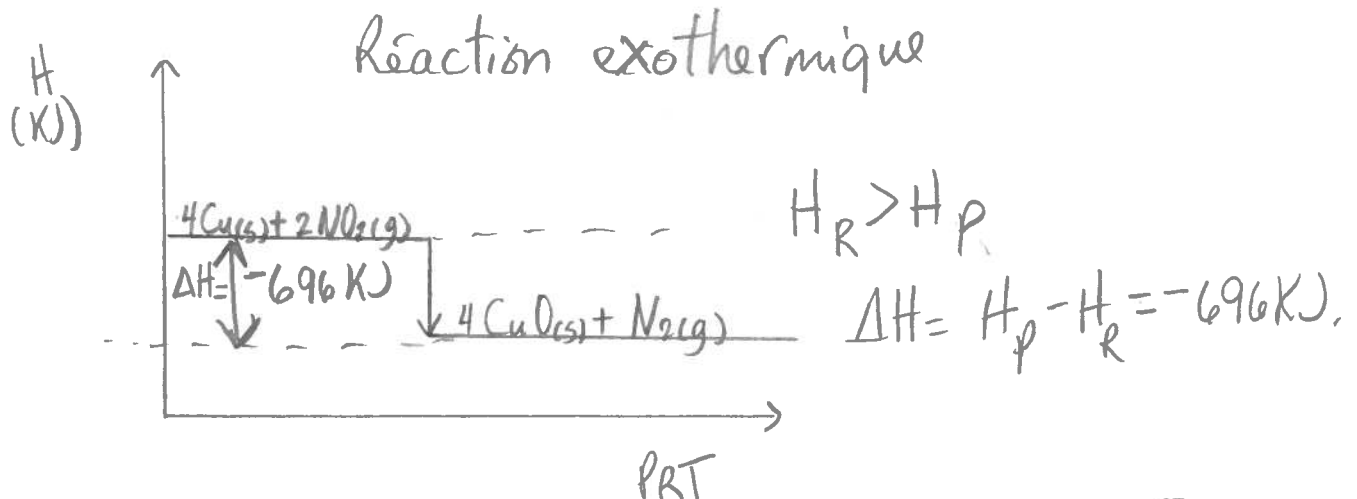 Réaction exothermique
H
(KJ)
4Cu(s) + 2NO2(g)
ΔH = -696 KJ
4CuO(s) + N2(g)
HR > HP
ΔH = Hp - HR = -696 KJ.
PRT